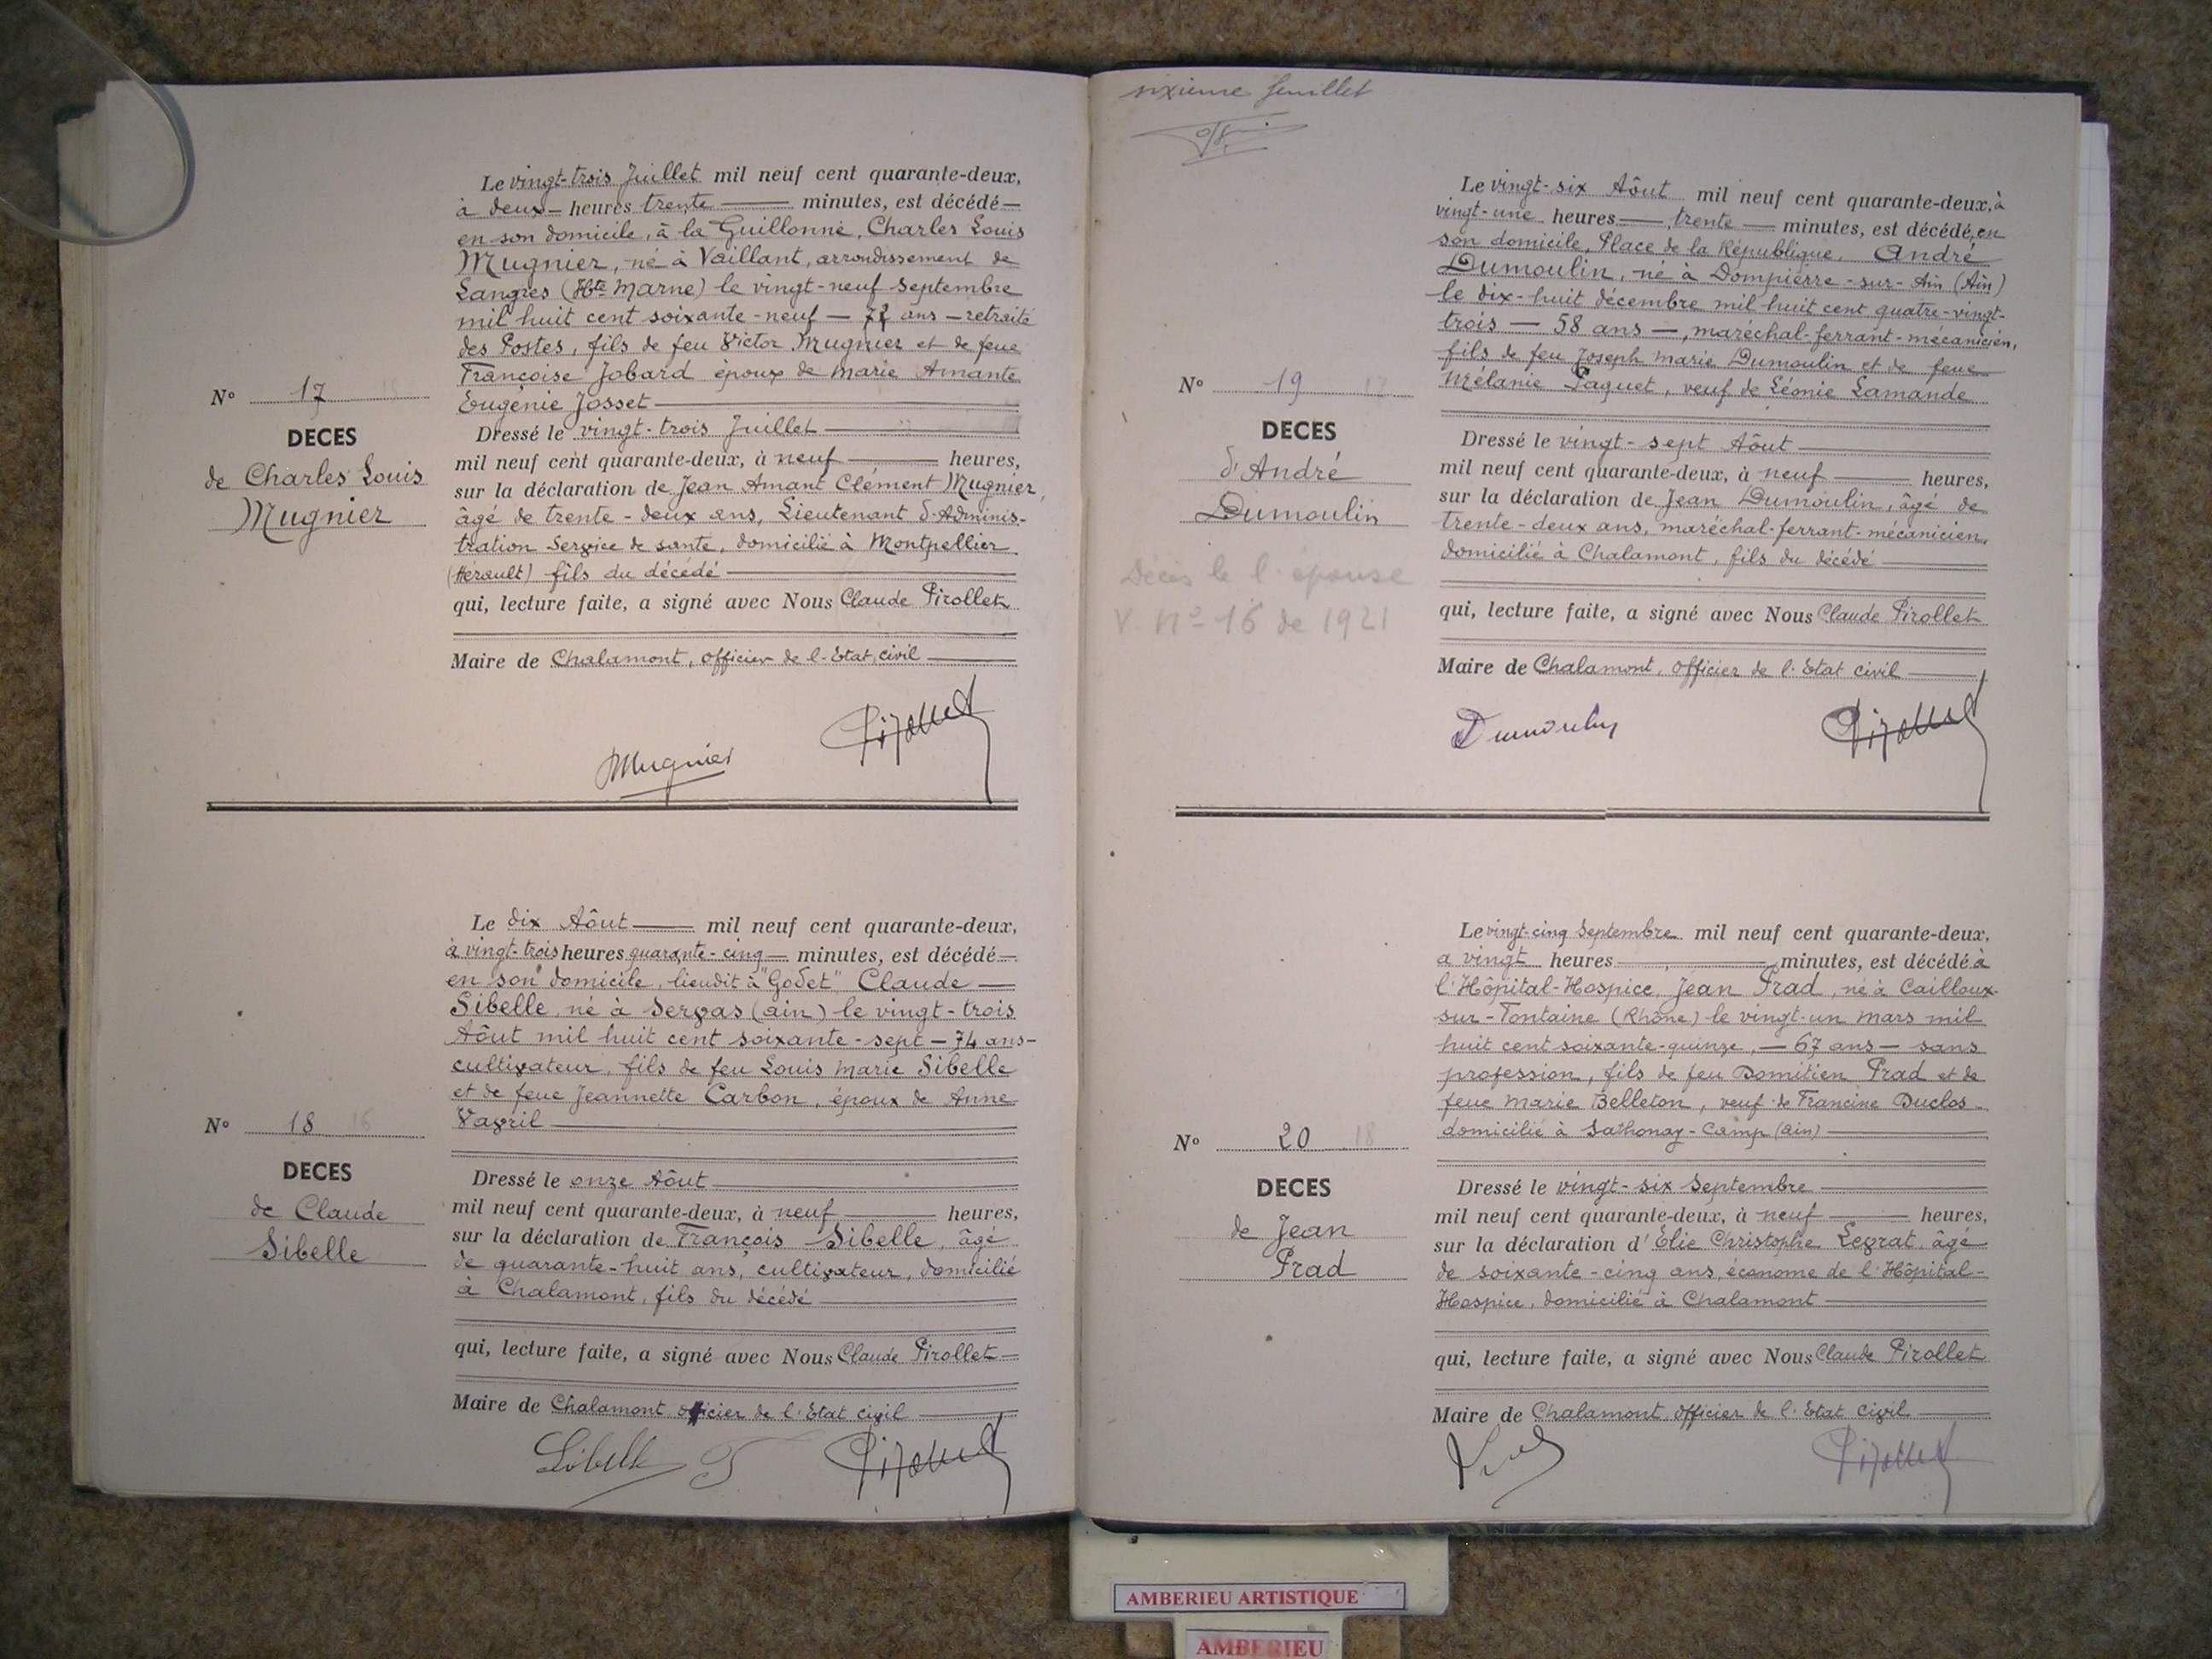 Le vingt-trois Juillet mil neuf cent quarante-deux,
à deux - heures trente — minutes, est décédé —
en son domicile, à la Guillonne, Charles Louis
Mugnier, né à Vaillant, arrondissement de
Langres (Hte Marne) le vingt-neuf Septembre
mil huit cent soixante-neuf — 72 ans — retraité
des Postes, fils de feu Victor Mugnier et de feue
Françoise Jobard époux de Marie Amante
Eugénie Josset
N° 17
DECES
de Charles Louis
Mugnier
Dressé le vingt-trois Juillet
mil neuf cent quarante-deux, à neuf — heures,
sur la déclaration de Jean Amant Clément Mugnier,
âgé de trente-deux ans, Lieutenant d'Adminis-
tration Service de santé, domicilié à Montpellier
(Hérault) fils du décédé
qui, lecture faite, a signé avec Nous Claude Pirollet
Maire de Chalamont, officier de l'Etat civil
Mugnier
Pirollet
Le dix Aôut — mil neuf cent quarante-deux,
à vingt-trois heures quarante-cinq — minutes, est décédé —
en son domicile, lieudit à "Godet" Claude —
Sibelle, né à Servas (ain) le vingt-trois
Aôut mil huit cent soixante-sept — 74 ans -
cultivateur, fils de feu Louis Marie Sibelle
et de feue Jeannette Carbon, époux de Anne
Vavril
N° 18 16
DECES
de Claude
Sibelle
Dressé le onze Aôut
mil neuf cent quarante-deux, à neuf — heures,
sur la déclaration de François Sibelle, âgé
de quarante-huit ans, cultivateur, domicilié
à Chalamont, fils du décédé
qui, lecture faite, a signé avec Nous Claude Pirollet —
Maire de Chalamont officier de l'Etat civil
Sibelle F
Pirollet
sixieme feuillet
Le vingt-six Aôut mil neuf cent quarante-deux, à
vingt-une heures — trente — minutes, est décédé, en
son domicile, Place de la République, André
Dumoulin, né à Dompierre-sur-Ain (Ain)
le dix-huit décembre mil huit cent quatre-vingt-
trois — 58 ans —, maréchal-ferrant-mécanicien,
fils de feu Joseph Marie Dumoulin et de feue
Mélanie Paquet, veuf de Léonie Lamande
N° 19 17
DECES
d'André
Dumoulin
Décès de l'épouse
V. N° 16 de 1921
Dressé le vingt-sept Aôut
mil neuf cent quarante-deux, à neuf — heures,
sur la déclaration de Jean Dumoulin, âgé de
trente-deux ans, maréchal-ferrant-mécanicien,
domicilié à Chalamont, fils du décédé
qui, lecture faite, a signé avec Nous Claude Pirollet
Maire de Chalamont, officier de l'Etat civil
Dumoulin
Pirollet
Le vingt-cinq Septembre mil neuf cent quarante-deux,
à vingt heures — minutes, est décédé à
l'Hôpital-Hospice, Jean Prad, né à Cailloux-
sur-Fontaine (Rhône) le vingt-un Mars mil
huit cent soixante-quinze, — 67 ans — sans
profession, fils de feu Domitien Prad et de
feue Marie Belleton, veuf de Francine Duclos
domicilié à Sathonay-Camp (ain)
N° 20 18
DECES
de Jean
Prad
Dressé le vingt-six Septembre
mil neuf cent quarante-deux, à neuf — heures,
sur la déclaration d'Elie Christophe Legrat, âgé
de soixante-cinq ans, économe de l'Hôpital-
Hospice, domicilié à Chalamont
qui, lecture faite, a signé avec Nous Claude Pirollet
Maire de Chalamont officier de l'Etat civil
Pirollet
AMBERIEU ARTISTIQUE
AMBERIEU